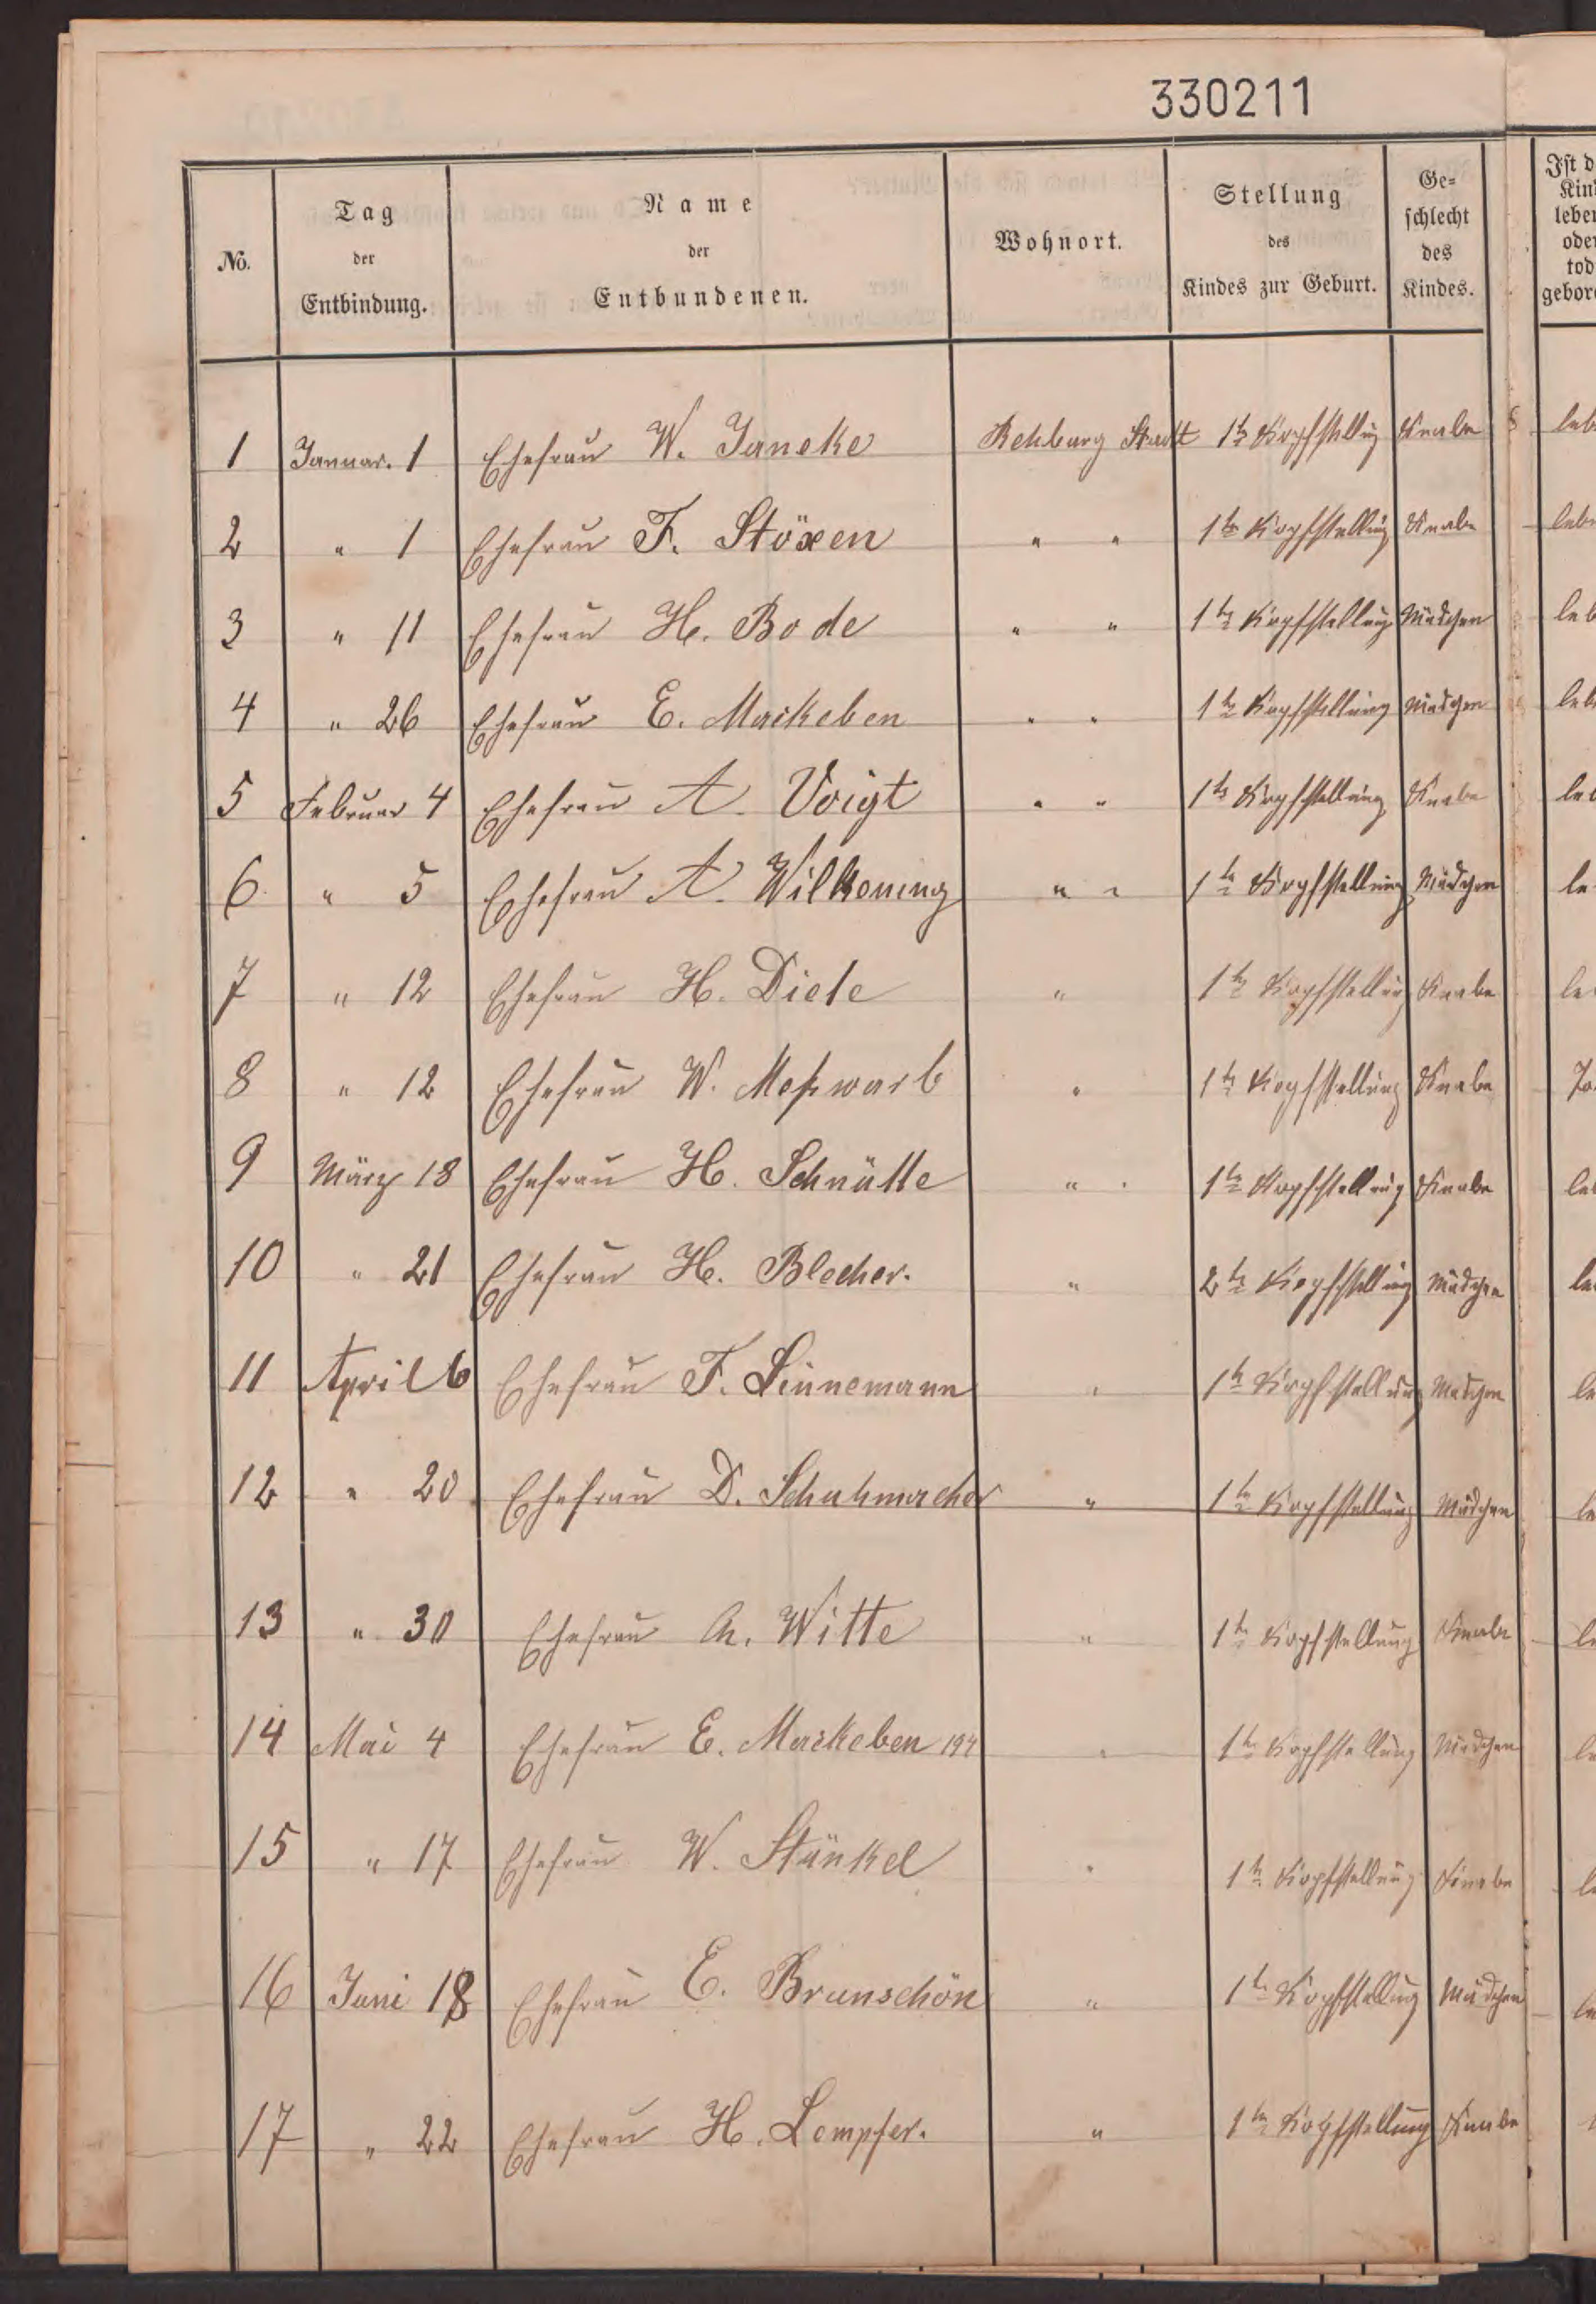 330211
No. Tag der Entbindung. Name der Entbundenen. Wohnort. Stellung des Kindes zur Geburt. Ge-schlecht des Kindes.
1 Januar. 1 Ehefrau W. Janeke Rehburg Stadt 1te Kopfstellung Knabe
2 " 1 Ehefrau F. Stöxen " " 1te Kopfstellung Knabe
3 " 11 Ehefrau H. Bode " " 1te Kopfstellung Mädchen
4 " 26 Ehefrau E. Markeben " " 1te Kopfstellung Mädchen
5 Februar 4 Ehefrau A. Voigt " " 1te Kopfstellung Knabe
6 " 5 Ehefrau A. Wilkening " " 1te Kopfstellung Mädchen
7 " 12 Ehefrau H. Diele " 1te Kopfstellung Knabe
8 " 12 Ehefrau W. Meßwarb " 1te Kopfstellung Knabe
9 März 18 Ehefrau H. Schnütte " " 1te Kopfstellung Knabe
10 " 21 Ehefrau H. Blecher. " 2te Kopfstellung Mädchen
11 April 6 Ehefrau F. Linnemann " 1te Kopfstellung Mädchen
12 " 20 Ehefrau D. Schuhmacher " 1te Kopfstellung Mädchen
13 " 30 Ehefrau Witte " 1te Kopfstellung Knabe
14 Mai 4 Ehefrau E. Markeben 194 " 1te Kopfstellung Mädchen
15 " 17 Ehefrau W. Stünkel " 1te Kopfstellung Knabe
16 Juni 18 Ehefrau E. Brunschön " 1te Kopfstellung Mädchen
17 " 22 Ehefrau H. Lempfer. " 1te Kopfstellung Knabe